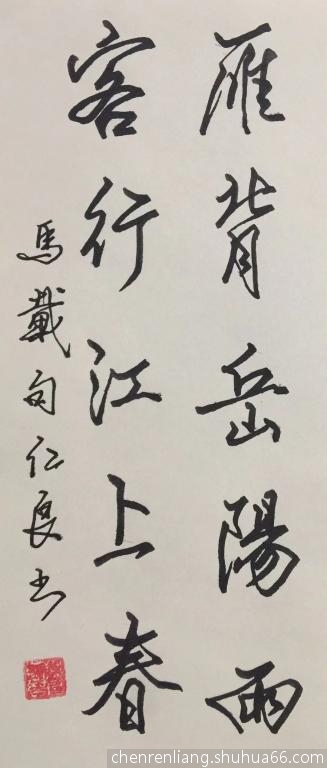 雁背岳陽雨
客行江上春
馬戴句仁良书
chenrenliang.shuhua66.com